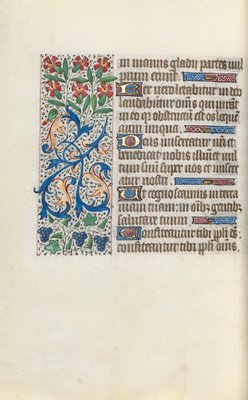 in manus gladii partes vul
pium erunt.
Rex vero letabitur in deo
laudabuntur omnes qui iurant
in eo quia obstructum est os loque
tium iniqua.
Deus misereatur nostri et
benedicat nobis illuminet vul
tum suum super nos et miserea
atur nostri
Ut cognoscamus in terra
viam tuam: in omnibus gentibus
salutare tuum
Confiteantur tibi populi deus
confiteantur tibi populi omnes